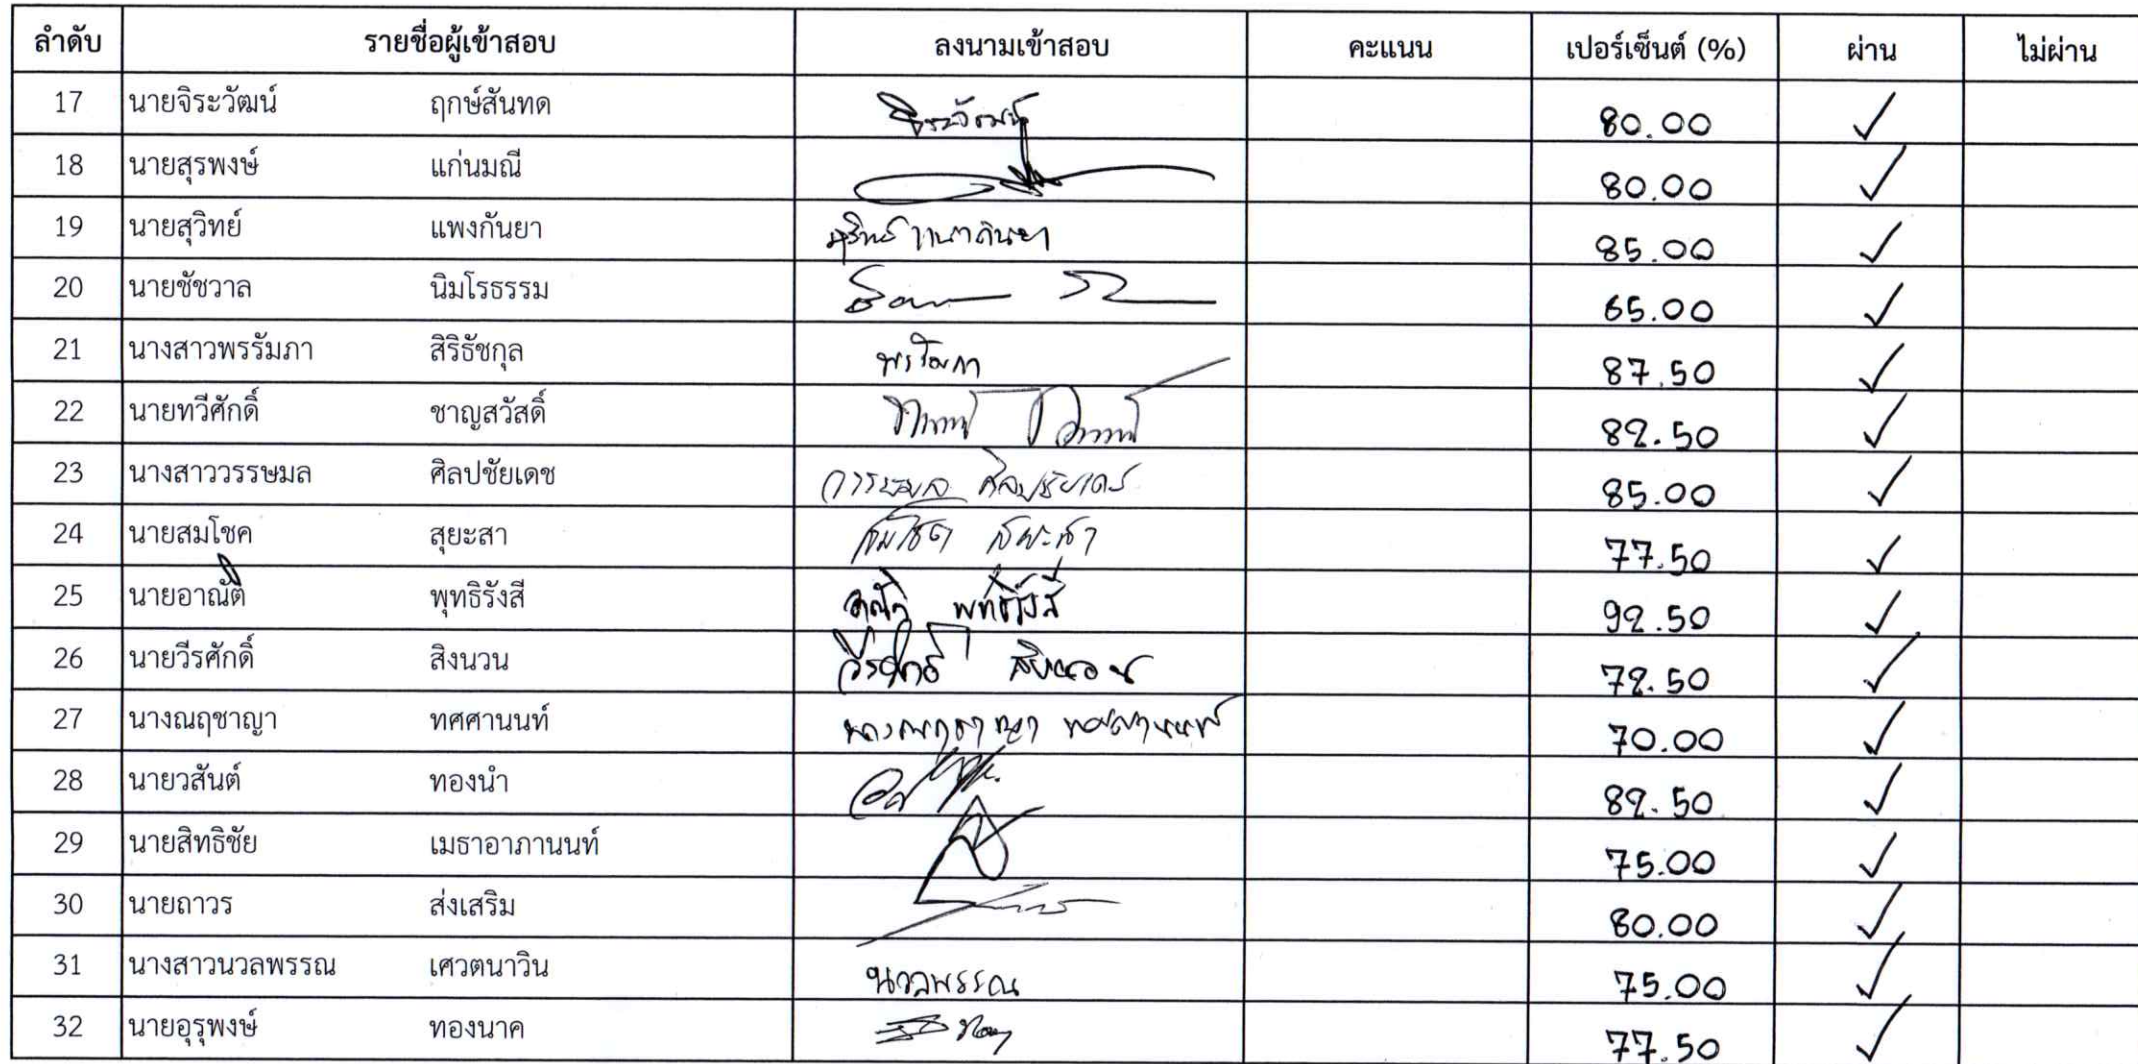 ลำดับ รายชื่อผู้เข้าสอบ ลงนามเข้าสอบ คะแนน เปอร์เซ็นต์ (%) ผ่าน ไม่ผ่าน
17 นายจิระวัฒน์ ฤกษ์สันทด จิระวัฒน์ 80.00 ✓
18 นายสุรพงษ์ แก่นมณี 80.00 ✓
19 นายสุวิทย์ แพงกันยา สุวิทย์ แพงกันยา 85.00 ✓
20 นายชัชวาล นิมโรธรรม 65.00 ✓
21 นางสาวพรรัมภา สิริธัชกุล พรรัมภา 87.50 ✓
22 นายทวีศักดิ์ ชาญสวัสดิ์ 82.50 ✓
23 นางสาววรรษมล ศิลปชัยเดช วรรษมล ศิลปชัยเดช 85.00 ✓
24 นายสมโชค สุยะสา สมโชค สุยะสา 77.50 ✓
25 นายอาณัติ พุทธิรังสี อาณัติ พุทธิรังสี 92.50 ✓
26 นายวีรศักดิ์ สิงนวน วีรศักดิ์ สิงนวน 72.50 ✓
27 นางณฤชาญา ทศศานนท์ นางณฤชาญา ทศศานนท์ 70.00 ✓
28 นายวสันต์ ทองนำ 82.50 ✓
29 นายสิทธิชัย เมธาอาภานนท์ 75.00 ✓
30 นายถาวร ส่งเสริม 80.00 ✓
31 นางสาวนวลพรรณ เศวตนาวิน นวลพรรณ 75.00 ✓
32 นายอุรุพงษ์ ทองนาค 77.50 ✓